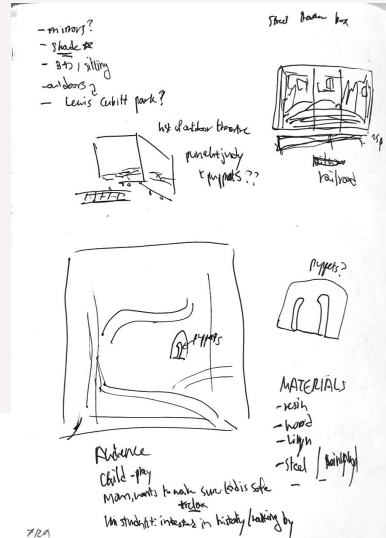 - mirrors?
- shade
- sitting
- outdoors
- Lewis Cubitt park?
Street theatre box
hist of outdoor theatre
punch + judy
puppets??
railroad
puppets
puppets?
MATERIALS
- resin
- wood
- steel
Audience
Child - play
Mom, wants to make sure kid is safe
Uni student: interested in history / walking by